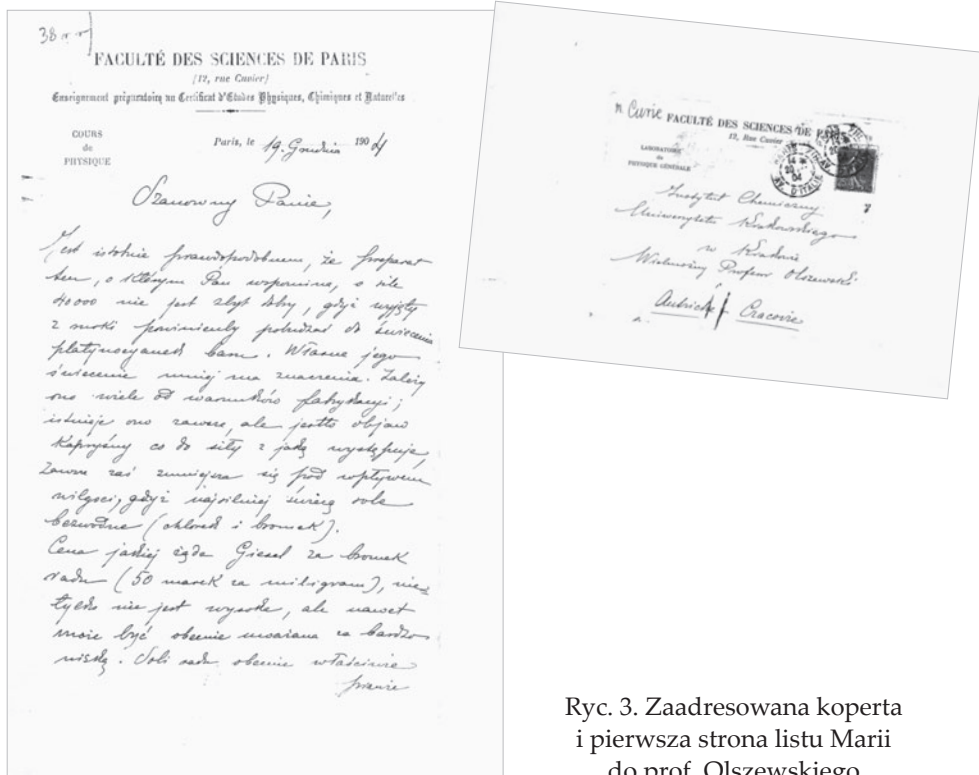 38
FACULTÉ DES SCIENCES DE PARIS
(12, rue Cuvier)
Enseignement préparatoire au Certificat d'Études Physiques, Chimiques et Naturelles
COURS
de
PHYSIQUE
Paris, le 19. Grudnia 1904
Szanowny Panie,
Jest istotnie prawdopodobnem, że preparat
ten, o którym Pan wspomina, o sile
40000 nie jest zbyt dobry, gdyż wyjęty
z powinienby pobudzać do świecenia
platynocyanek baru. Własne jego
świecenie mniej ma znaczenia. Zależy
ono wiele od warunków fabrykacyi;
istnieje ono zawsze, ale jestto objaw
kapryśny co do siły z jaką występuje,
Zawsze zaś zmniejsza się pod wpływem
wilgoci, gdyż najsilniej świecą sole
bezwodne (chlorek i bromek).
Cena jakiej żąda Giesel za bromek
radu (50 marek za miligram), nie=
tylko nie jest wysoka, ale nawet
może być obecnie uważana za bardzo
niską. Soli radu obecnie właściwie
prawie
M. Curie FACULTÉ DES SCIENCES DE PARIS
12, Rue Cuvier
LABORATOIRE
de
PHYSIQUE GÉNÉRALE
AV. D'ITALIE
Instytut Chemiczny
Uniwersytetu Krakowskiego
w Krakowie
Wielmożny Profesor Olszewski
Autriche Cracovie
Ryc. 3. Zaadresowana koperta
i pierwsza strona listu Marii
do prof. Olszewskiego